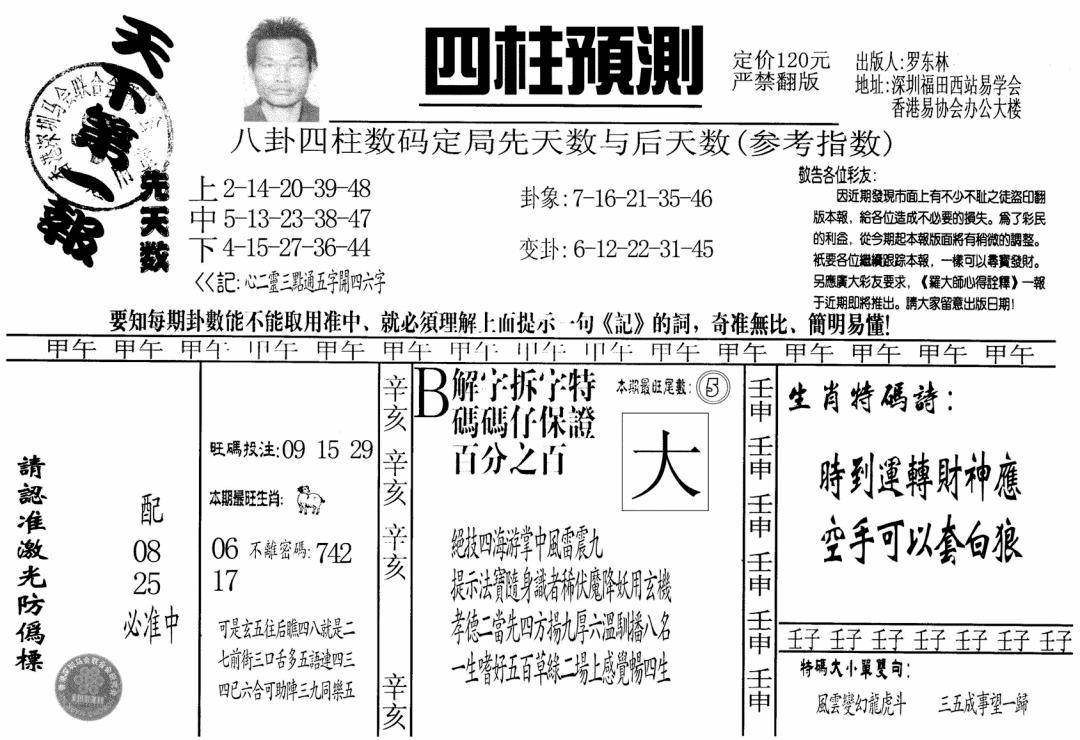 天下第一報
四柱預測
定价120元
严禁翻版
出版人:罗东林
地址:深圳福田西站易学会
香港易协会办公大楼
八卦四柱数码定局先天数与后天数(参考指数)
先天数
上 2-14-20-39-48
中 5-13-23-38-47
下 4-15-27-36-44
<<記:心二靈三點通五字開四六字
卦象:7-16-21-35-46
变卦:6-12-22-31-45
敬告各位彩友:
因近期發現市面上有不少不耻之徒盜印翻
版本報,給各位造成不必要的損失。為了彩民
的利益,從今期起本報版面將有稍微的調整。
衹要各位繼續跟踪本報,一樣可以尋寶發財。
另應廣大彩友要求,《羅大師心得詮釋》一報
于近期即將推出。請大家留意出版日期!
要知每期卦數能不能取用准中、就必須理解上面提示一句《記》的詞,奇准無比、簡明易懂!
甲午 甲午 甲午 甲午 甲午 甲午 甲午 甲午 甲午 甲午 甲午 甲午 甲午 甲午 甲午
請認准激光防僞標
配
08
25
必准中
旺碼投注:09 15 29
本期最旺生肖:
06 不離密碼:742
17
可是玄五往后瞧四八就是二
七前街三口舌多五語連四三
四已六合可助陣三九同樂五
辛亥
辛亥
辛亥
辛亥
B解字拆字特
碼碼仔保證
百分之百
本期最旺尾數:5
大
絕技四海游掌中風雷震九
提示法寶隨身識者稀伏魔降妖用玄機
孝德二當先四方揚九厚六溫馴播八名
一生嗜好五百草綠二場上感覺暢四生
壬申
壬申
壬申
壬申
壬申
壬申
生肖特碼詩:
時到運轉財神應
空手可以套白狼
壬子 壬子 壬子 壬子 壬子 壬子 壬子
特碼大小單雙句:
風雲變幻龍虎斗 三五成事望一歸